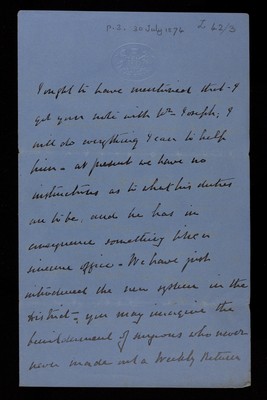 p.s. 30 July 1876
L 62/3
I ought to have mentioned that I
got your note with Wm Joseph; I
will do everything I can to help
him - at present we have no
instructions as to what his duties
are to be, and he has in
consequence something like a
sinecure office - We have just
introduced the new system in the
District - you may imagine the
bewilderment of who never
never made out a Weekly Return